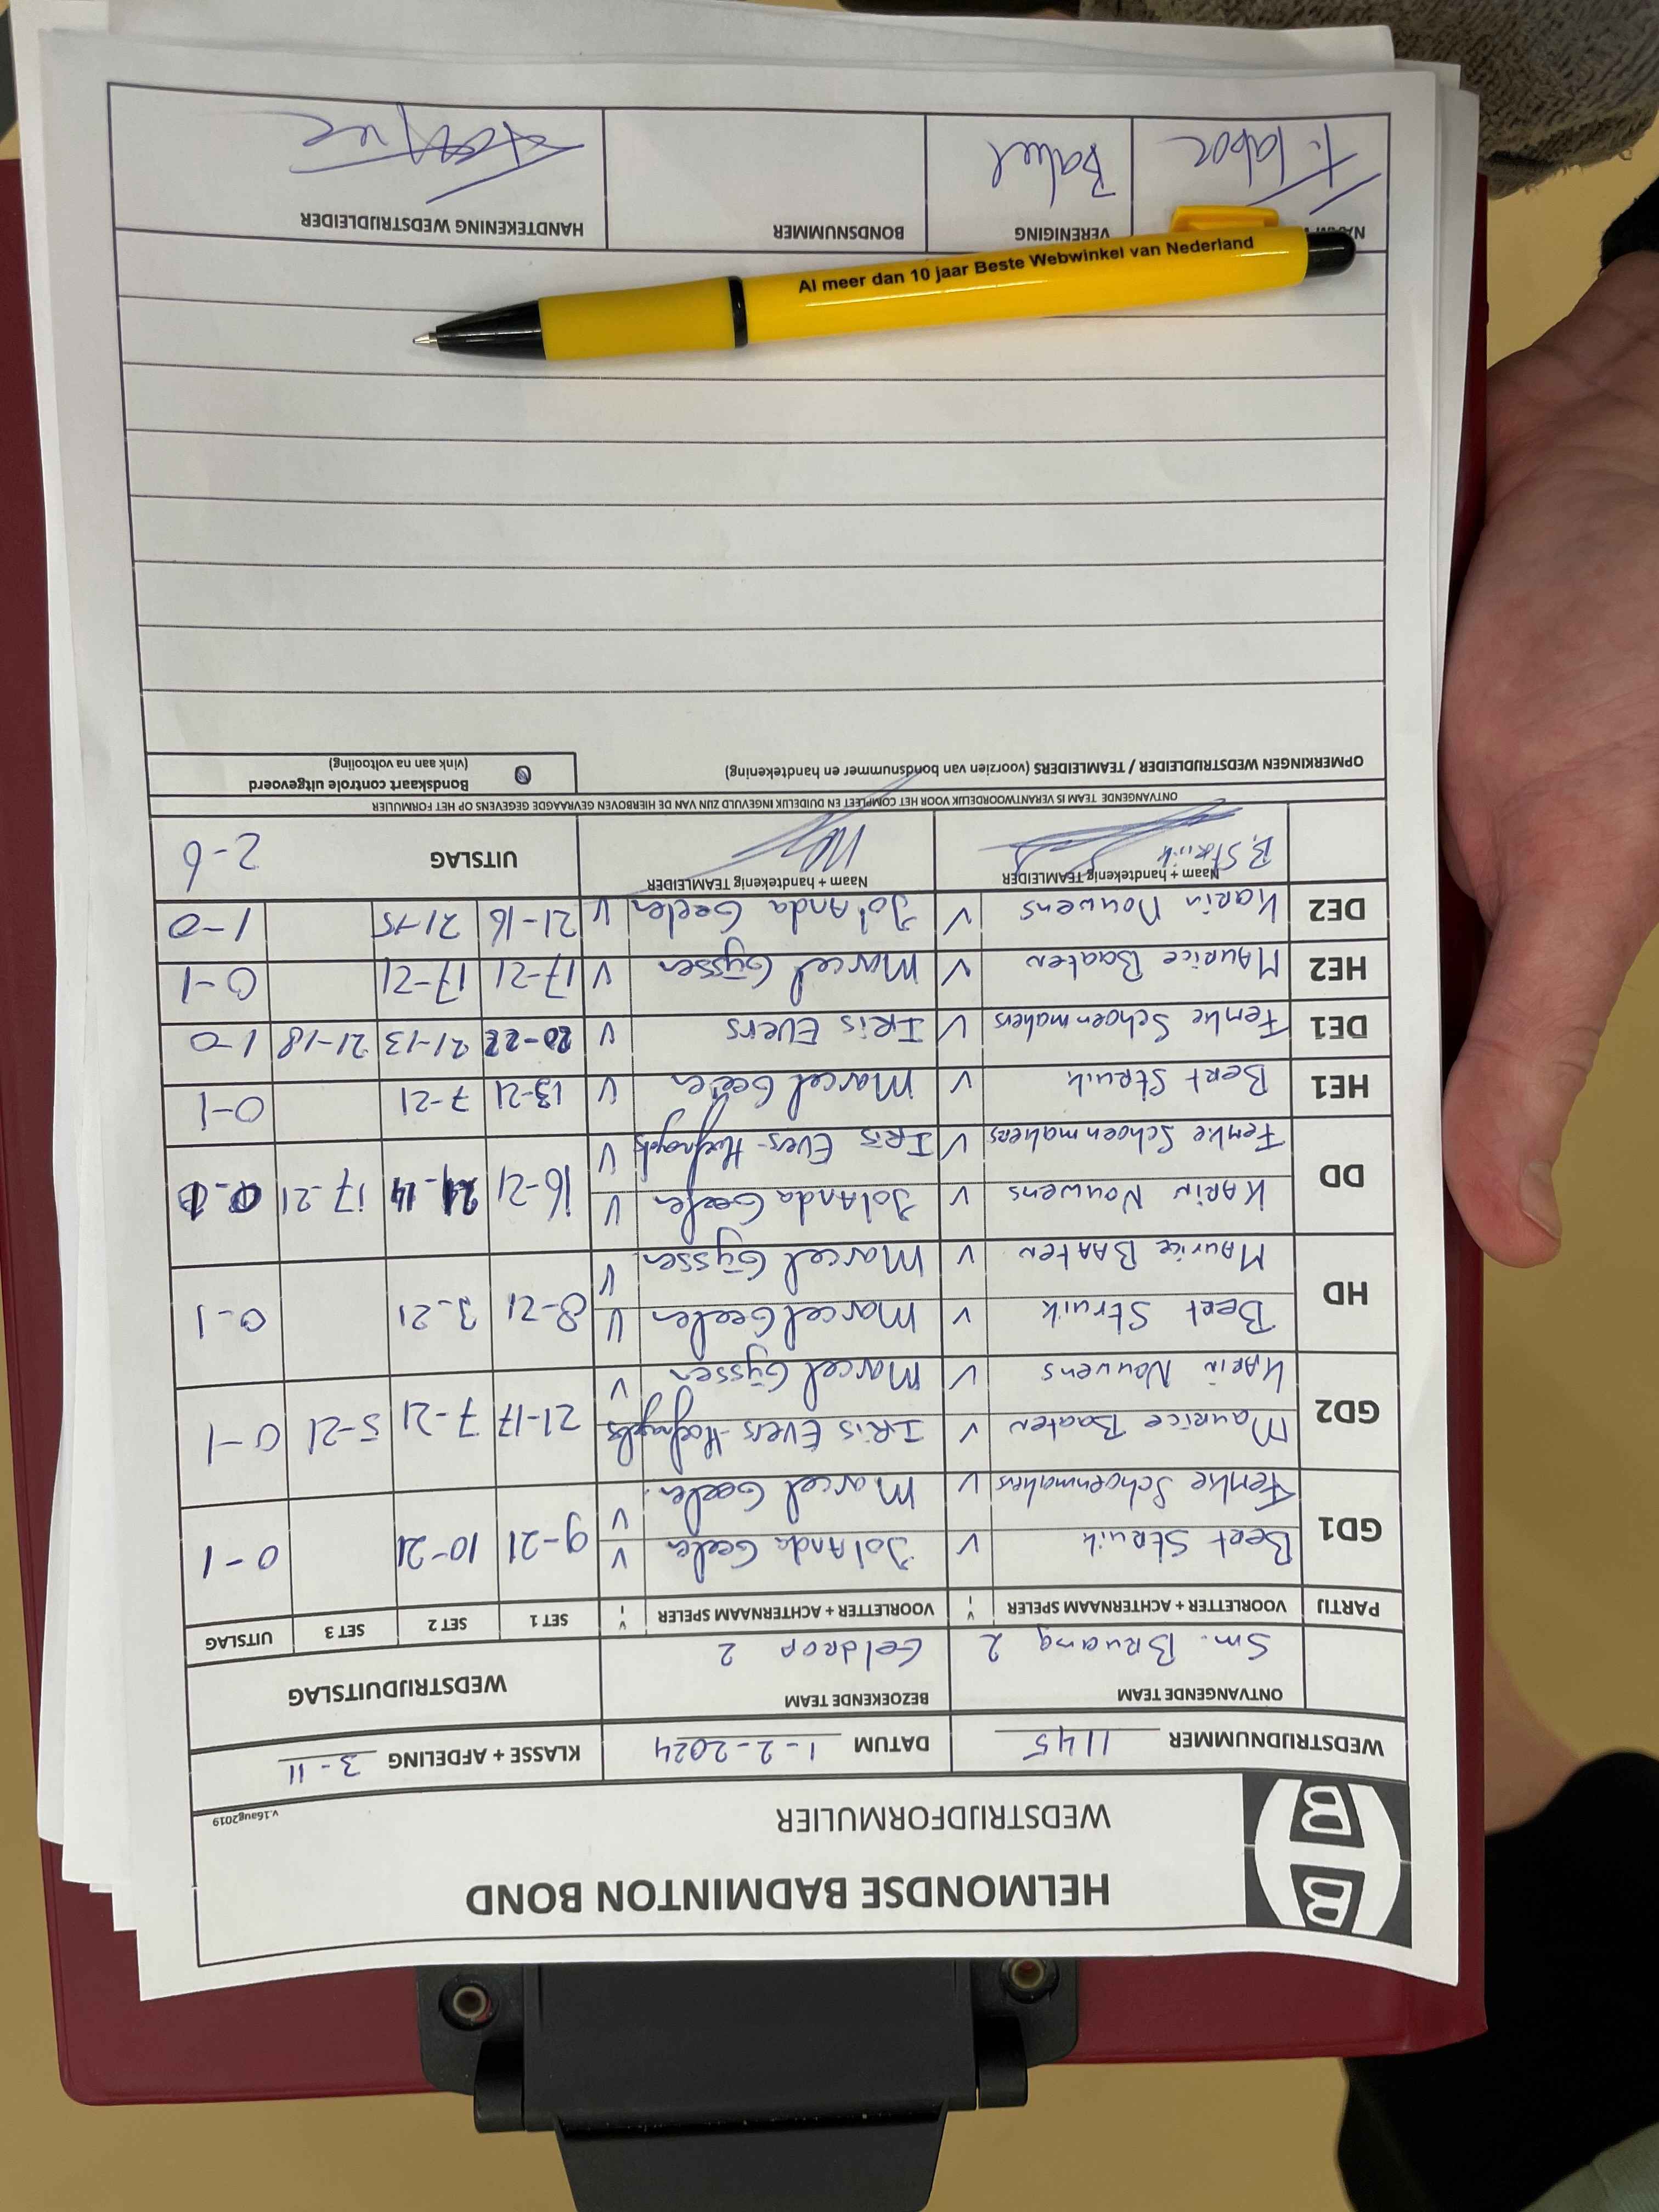 BB
HELMONDSE BADMINTON BOND
WEDSTRIJDFORMULIER
v.16aug2019
WEDSTRIJDNUMMER 1145 DATUM 1-2-2024 KLASSE + AFDELING 3-11
ONTVANGENDE TEAM BEZOEKENDE TEAM WEDSTRIJDUITSLAG
Sm. Bruang 2 Geldrop 2
PARTIJ VOORLETTER + ACHTERNAAM SPELER V - VOORLETTER + ACHTERNAAM SPELER V - SET 1 SET 2 SET 3 UITSLAG
GD1 Bert Struik V Jolanda Geelen V 9-21 10-21 0-1
Femke Schoenmakers V Marcel Geelen V
GD2 Maurice Baaten V Iris Evers-Hoefnagels 21-17 7-21 5-21 0-1
Karin Nouwens V Marcel Gijssen V
HD Bert Struik V Marcel Geelen V 8-21 3-21 0-1
Maurice Baaten V Marcel Gijssen V
DD Karin Nouwens V Jolanda Geelen V 16-21 21-14 17-21 0-1
Femke Schoenmakers V Iris Evers-Hoefnagels V
HE1 Bert Struik V Marcel Geelen V 13-21 7-21 0-1
DE1 Femke Schoenmakers V Iris Evers V 20-22 21-13 21-18 1-0
HE2 Maurice Baaten V Marcel Gijssen V 17-21 17-21 0-1
DE2 Karin Nouwens V Jolanda Geelen V 21-16 21-15 1-0
Naam + handtekenig TEAMLEIDER Naam + handtekenig TEAMLEIDER UITSLAG 2-6
B. Struik
ONTVANGENDE TEAM IS VERANTWOORDELIJK VOOR HET COMPLEET EN DUIDELIJK INGEVULD ZIJN VAN DE HIERBOVEN GEVRAAGDE GEGEVENS OP HET FORMULIER
OPMERKINGEN WEDSTRIJDLEIDER / TEAMLEIDERS (voorzien van bondsnummer en handtekening) Bondskaart controle uitgevoerd
(vink aan na voltooiing)
Al meer dan 10 jaar Beste Webwinkel van Nederland
VERENIGING BONDSNUMMER HANDTEKENING WEDSTRIJDLEIDER
Bakel